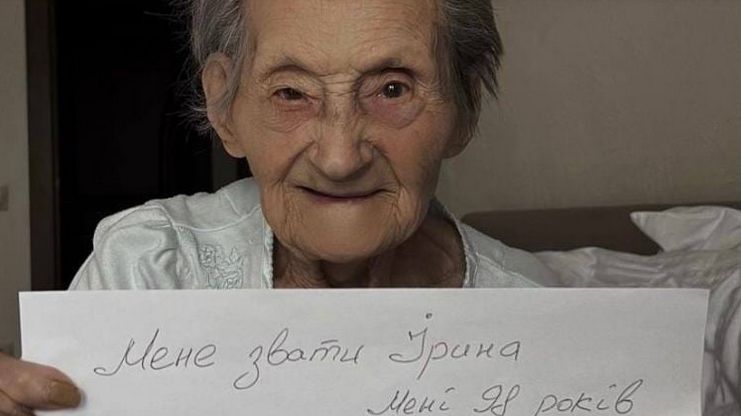 Мене звати Ірина
Мені 98 років